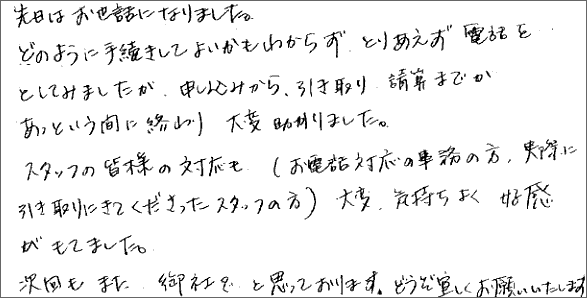 先日はお世話になりました。
どのように手続きしてよいかもわからず とりあえず 電話を
としてみましたが、申し込みから、引き取り 請算までが
あっという間に終わり 大変助かりました。
スタッフの皆様の対応も、(お電話対応の事務の方、実際に
引き取りにきてくださったスタッフの方) 大変、気持ちよく 好感
がもてました。
次回も また 御社で と思っております。どうぞ宜しくお願いいたします